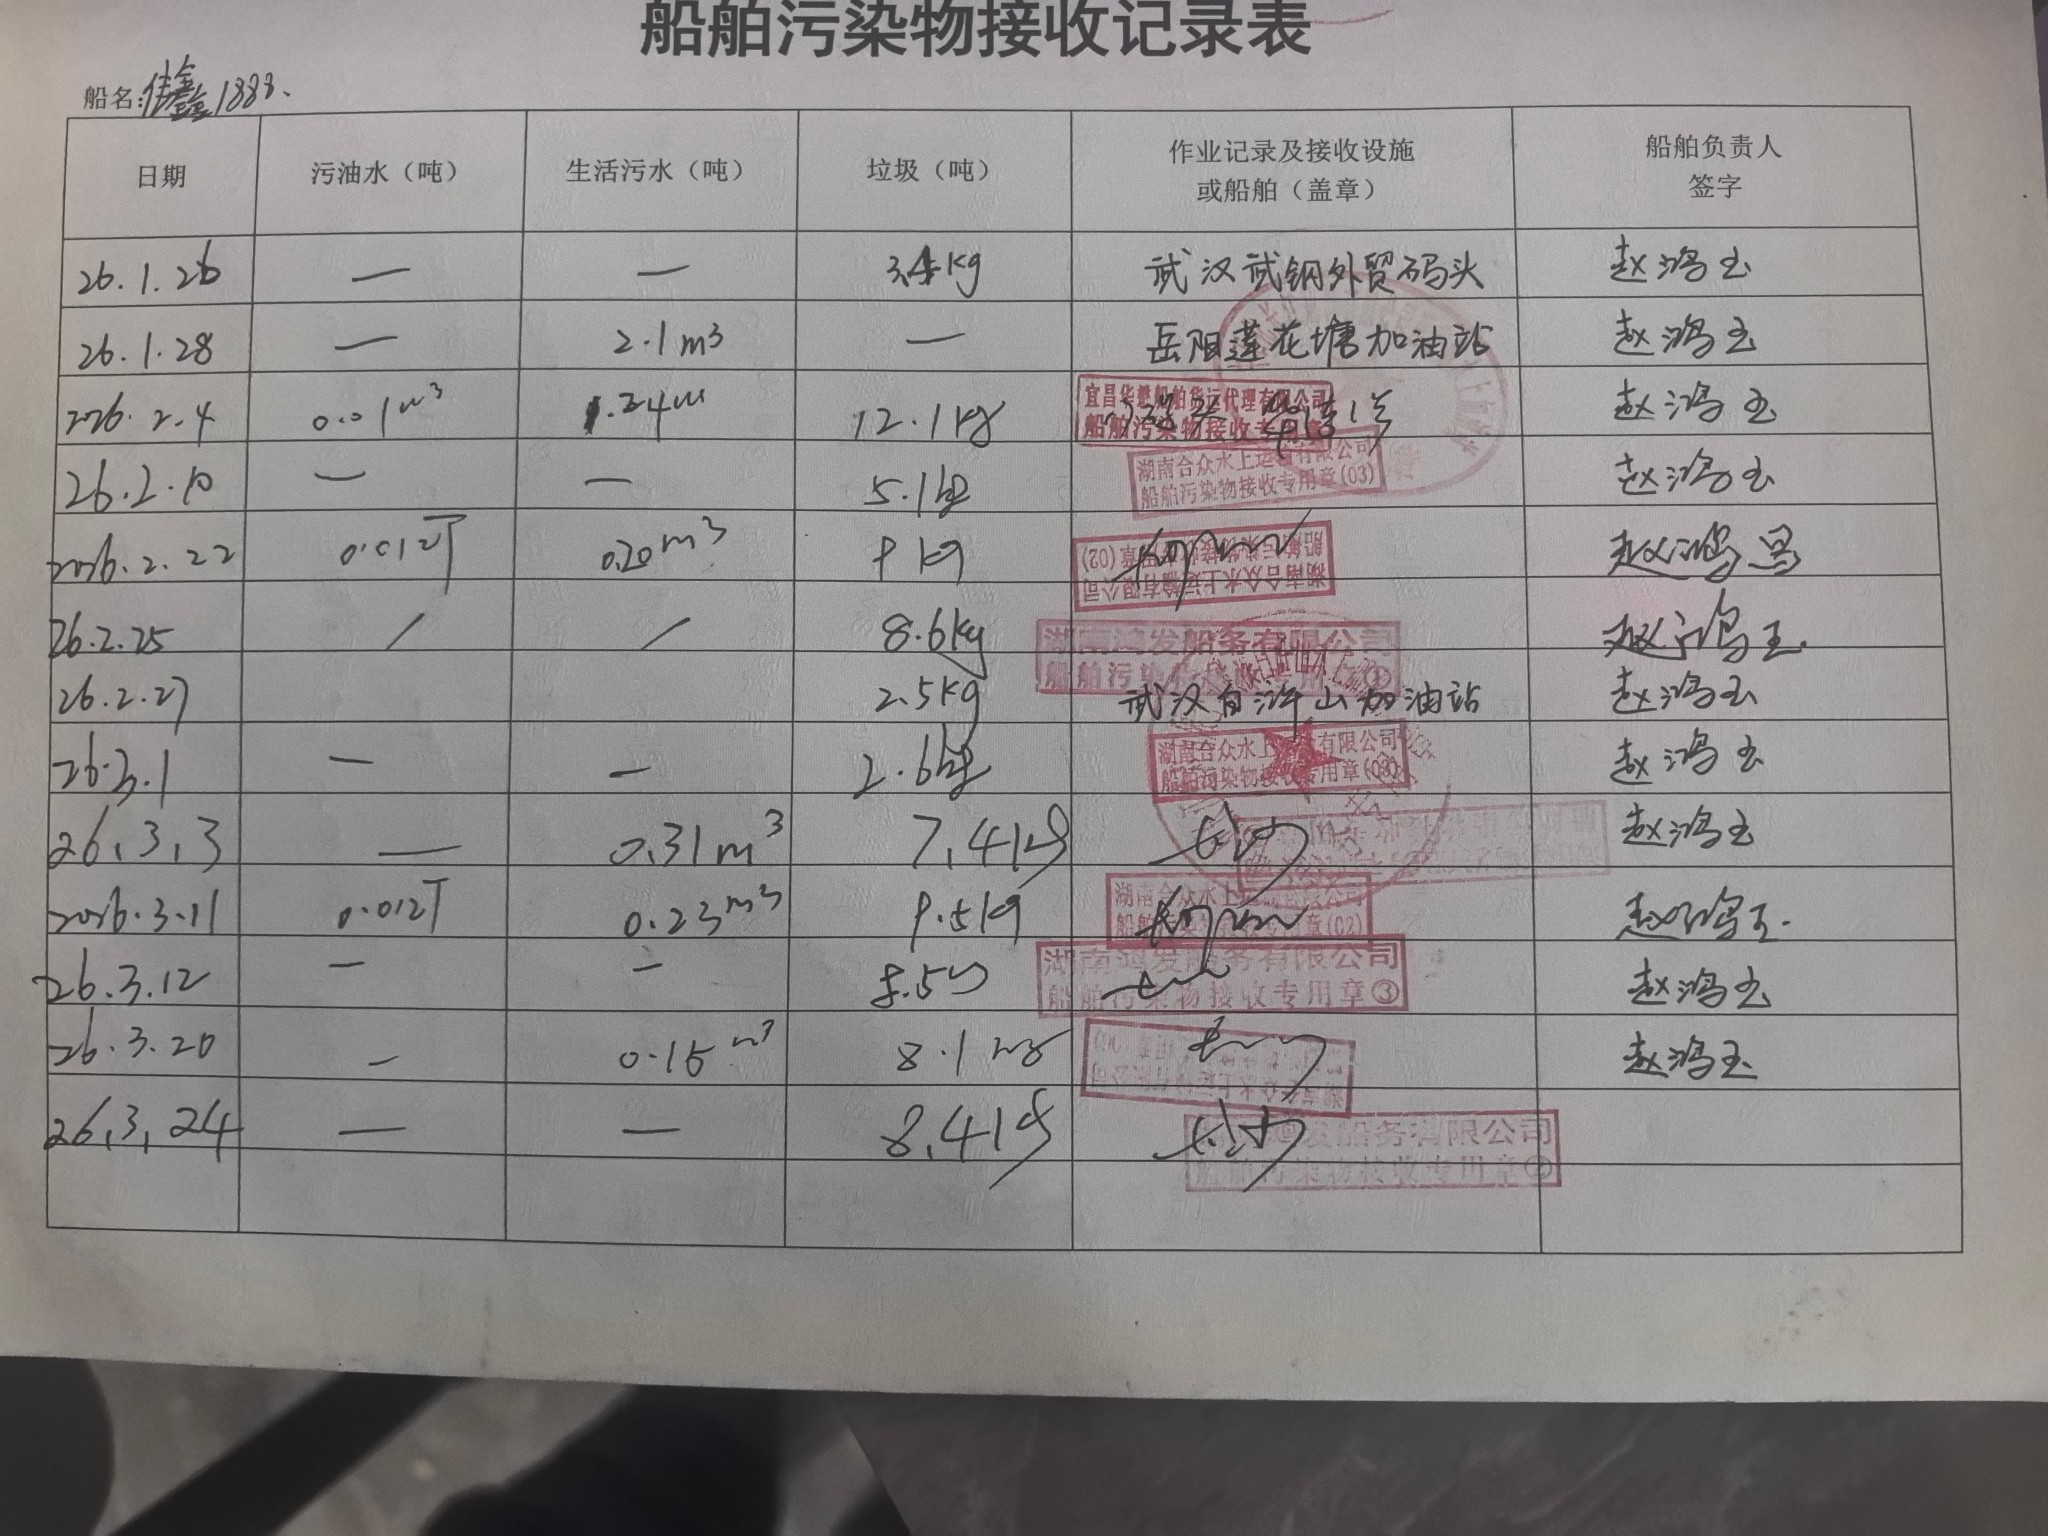 船舶污染物接收记录表
船名:佳鑫1888.
日期 污油水（吨） 生活污水（吨） 垃圾（吨） 作业记录及接收设施 或船舶（盖章） 船舶负责人 签字
26.1.26 — — 3.4kg 武汉武钢外贸码头 赵鸿玉
26.1.28 — 2.1m3 — 岳阳莲花塘加油站 赵鸿玉
2026.2.4 0.01m3 1.24m 12.1kg 赵鸿玉
宜昌华懋船舶货运代理有限公司
船舶污染物接收专用章
26.2.10 — — 5.1kg 赵鸿玉
湖南合众水上运输有限公司
船舶污染物接收专用章(03)
2026.2.22 0.012T 0.20m3 9kg 赵鸿玉
湖南合众水上运输有限公司
船舶污染物接收专用章(02)
26.2.25 / / 8.6kg 赵鸿玉
湖南鸿发船务有限公司
26.2.27 2.5kg 武汉白浒山加油站 赵鸿玉
26.3.1 — — 2.6kg 赵鸿玉
湖南合众水上运输有限公司
船舶污染物接收专用章(03)
26,3,3 — 0.31m3 7.4kg 长沙 赵鸿玉
2026.3.11 0.012T 0.23m3 9.5kg 赵鸿玉.
湖南合众水上运输有限公司
26.3.12 — — 8.5kg 赵鸿玉
湖南鸿发船务有限公司
船舶污染物接收专用章③
26.3.20 — 0.15m3 8.1kg 赵鸿玉
26,3,24 — — 8.4kg 长沙
鸿发船务有限公司
船舶污染物接收专用章